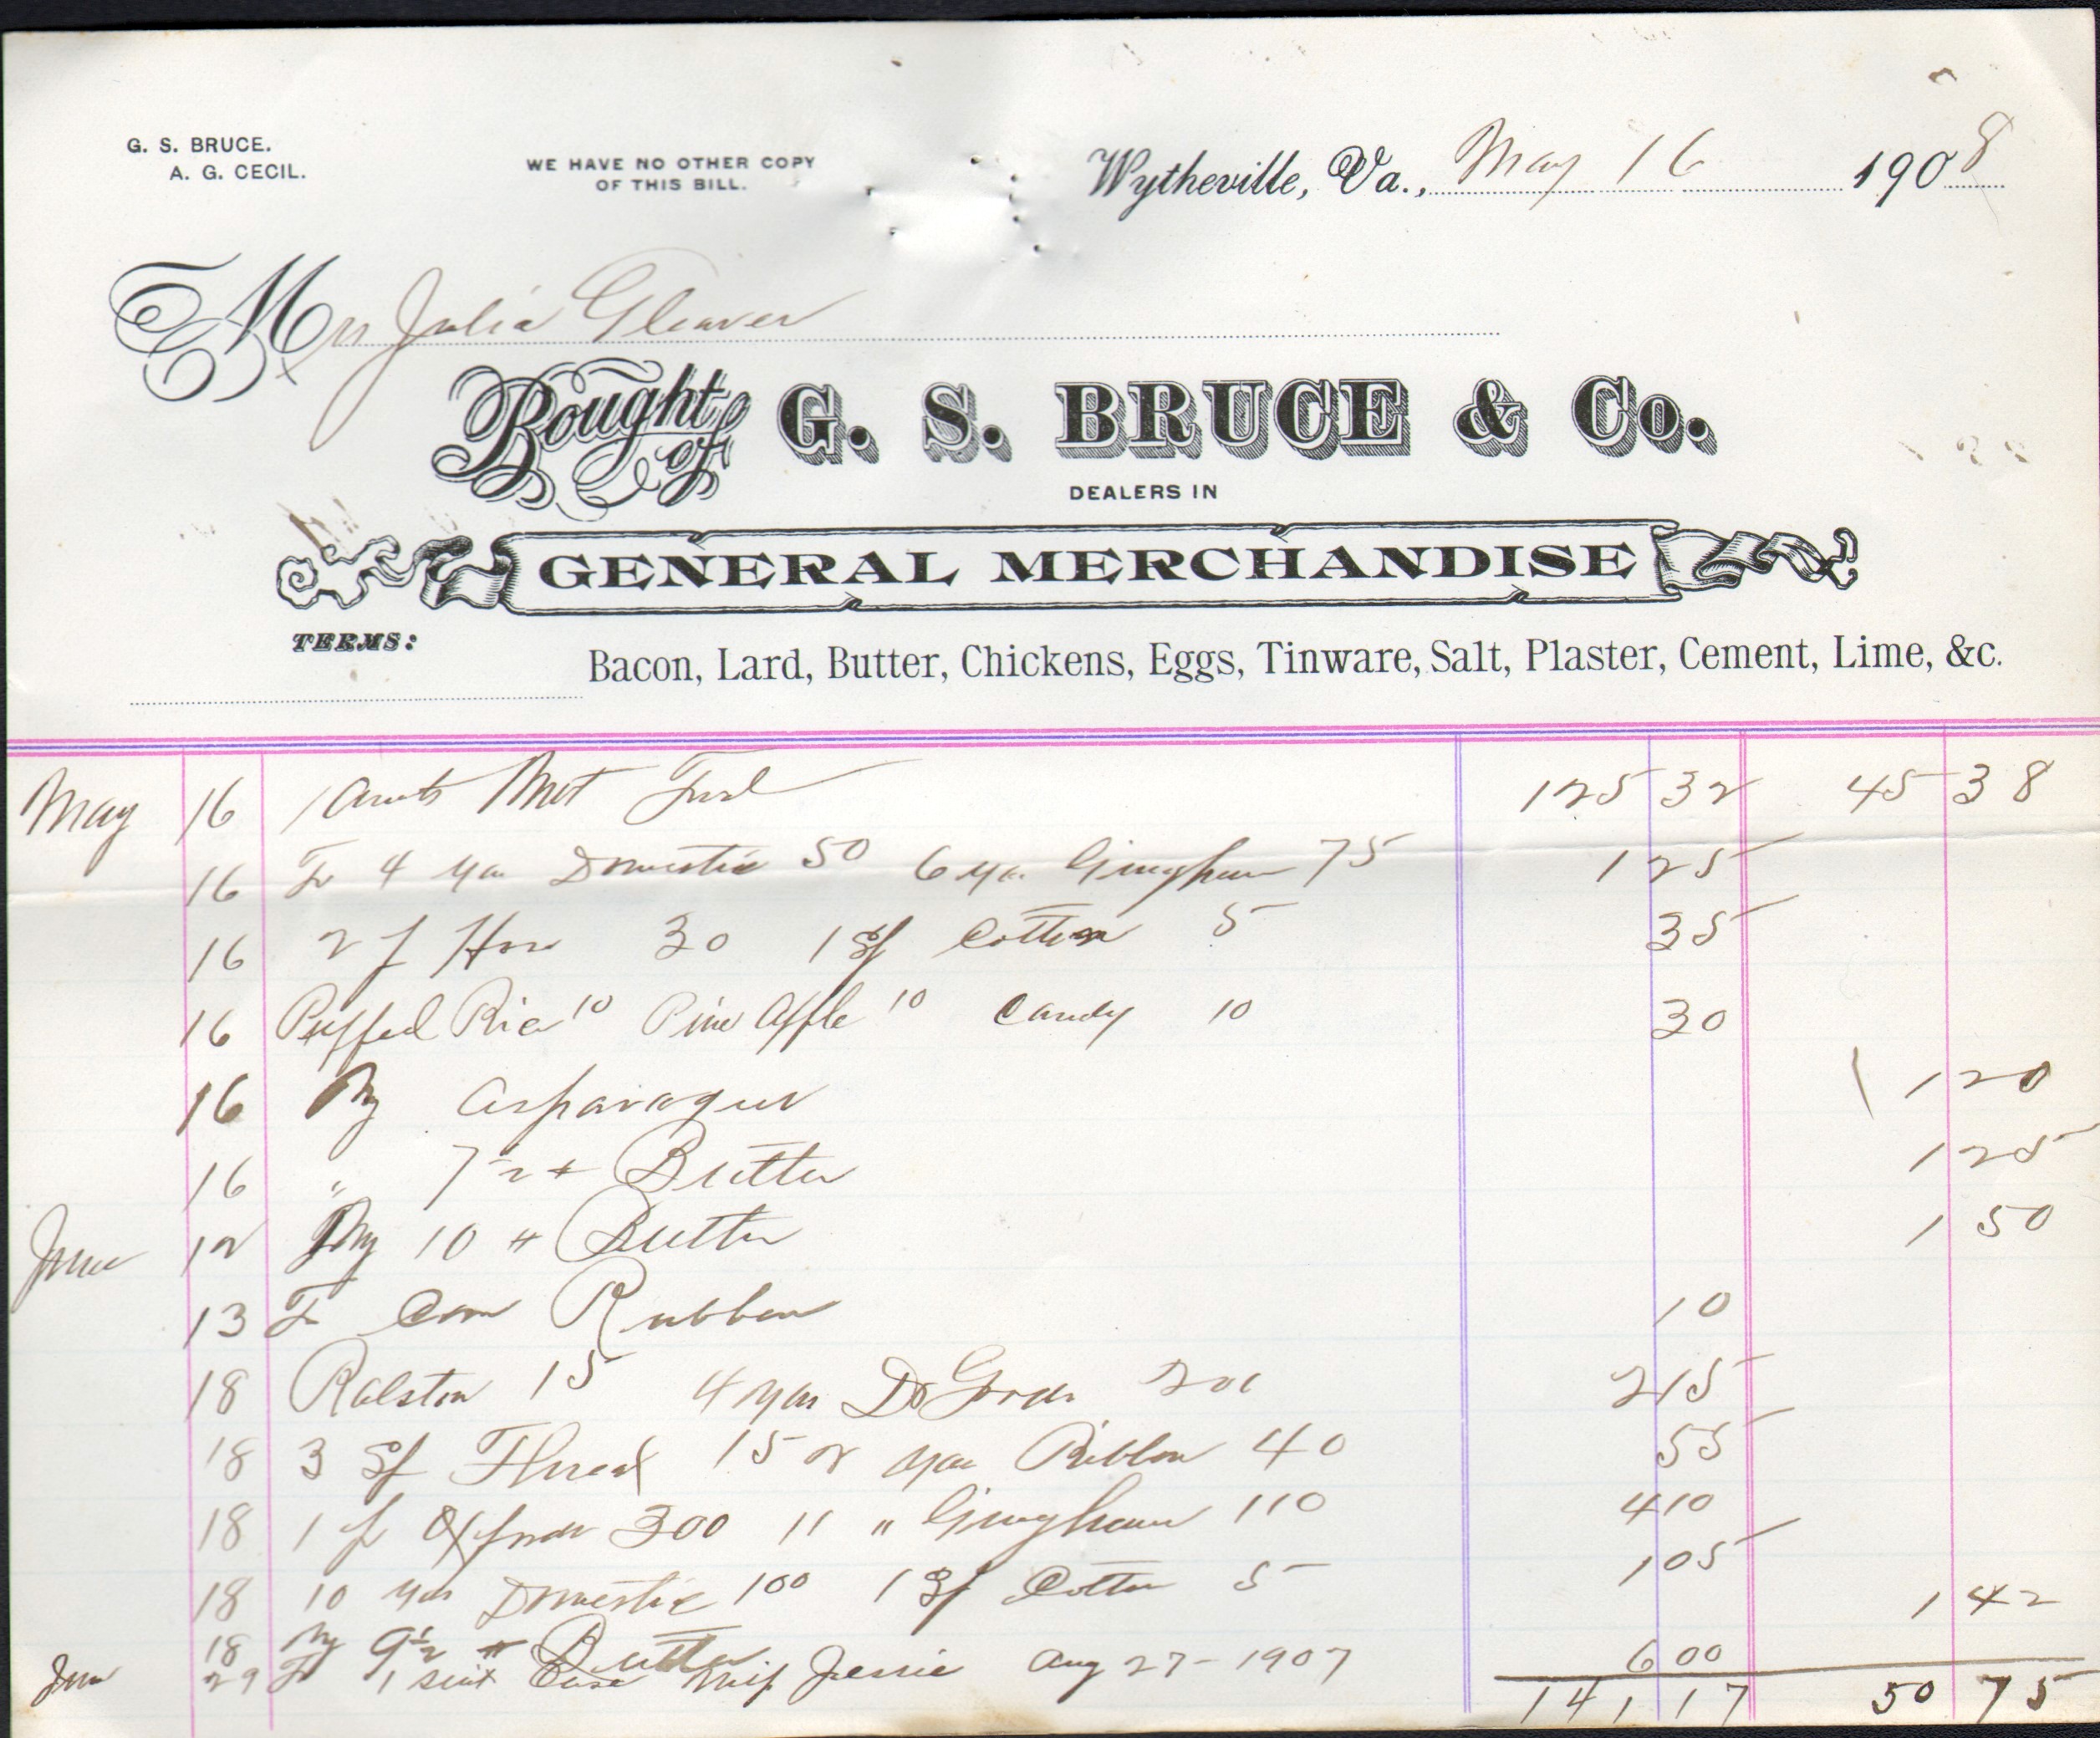 G. S. BRUCE.
A. G. CECIL.
WE HAVE NO OTHER COPY
OF THIS BILL.
Wytheville, Va., May 16 1908
Mrs Julia Gleaves
Bought of G. S. BRUCE & Co.
DEALERS IN
GENERAL MERCHANDISE
TERMS:
Bacon, Lard, Butter, Chickens, Eggs, Tinware, Salt, Plaster, Cement, Lime, &c.
May 16 Amts 125 32 45 38
16 To 4 yds Domestic 50 6 yds Gingham 75 1 25
16 2 p Hose 30 1 Sp Cotton 5 35
16 Puffed Rice 10 Pine Apple 10 Candy 10 30
16 By Asparagus 1 20
16 " 7 1/2 # Butter 1 25
June 12 By 10 # Butter 1 50
13 To Can Rubbers 10
18 Ralston 15 4 yds D Goods 200 2 15
18 3 Sp Thread 15 2 yds Ribbon 40 55
18 1 p Oxfords 300 11 " Gingham 110 4 10
18 10 yds Domestic 100 1 Sp Cotton 5 1 05
18 By 9 1/2 # Butter 1 42
Jun 29 To 1 suit Case Miss Jessie Aug 27 - 1907 6 00
141 17 50 75